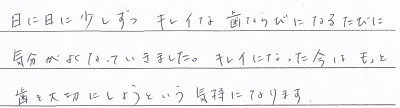 日に日に少しずつ キレイな 歯ならびに なるたびに
気分が よくなっていきました。キレイになった今は もっと
歯を大切にしようという 気持になります.